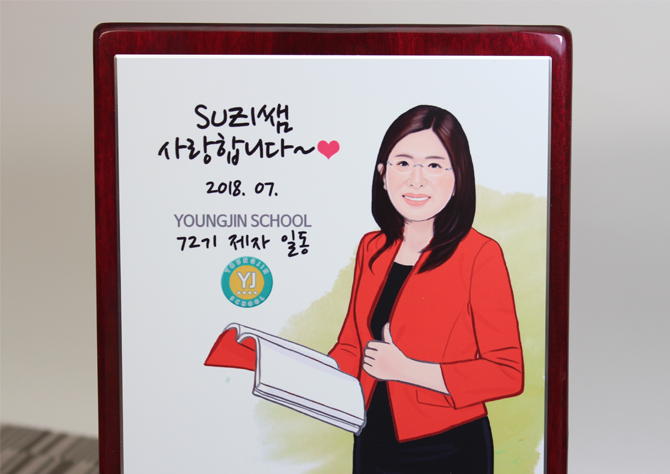 SUZI쌤
사랑합니다~❤
2018. 07.
YOUNGJIN SCHOOL
72기 제자 일동
YOUNGJIN
YJ
SCHOOL